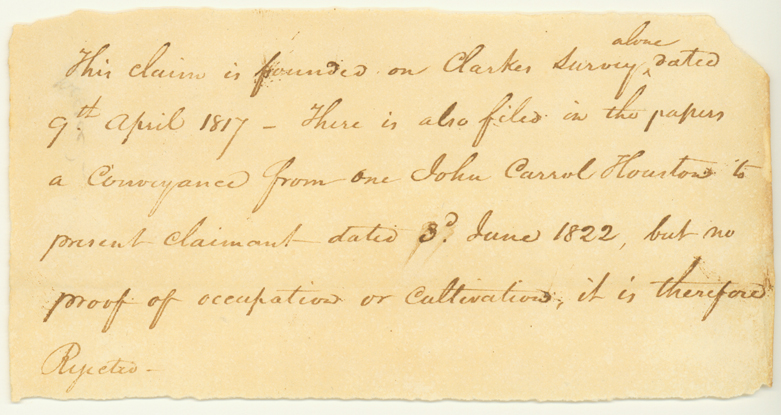 This claim is founded on Clarkes Survey alone dated
9th April 1817 – There is also filed in the papers
a Conveyance from one John Carrol Houston to
present claimant dated 3d. June 1822, but no
proof of occupation or cultivation, it is therefore
Rejected –